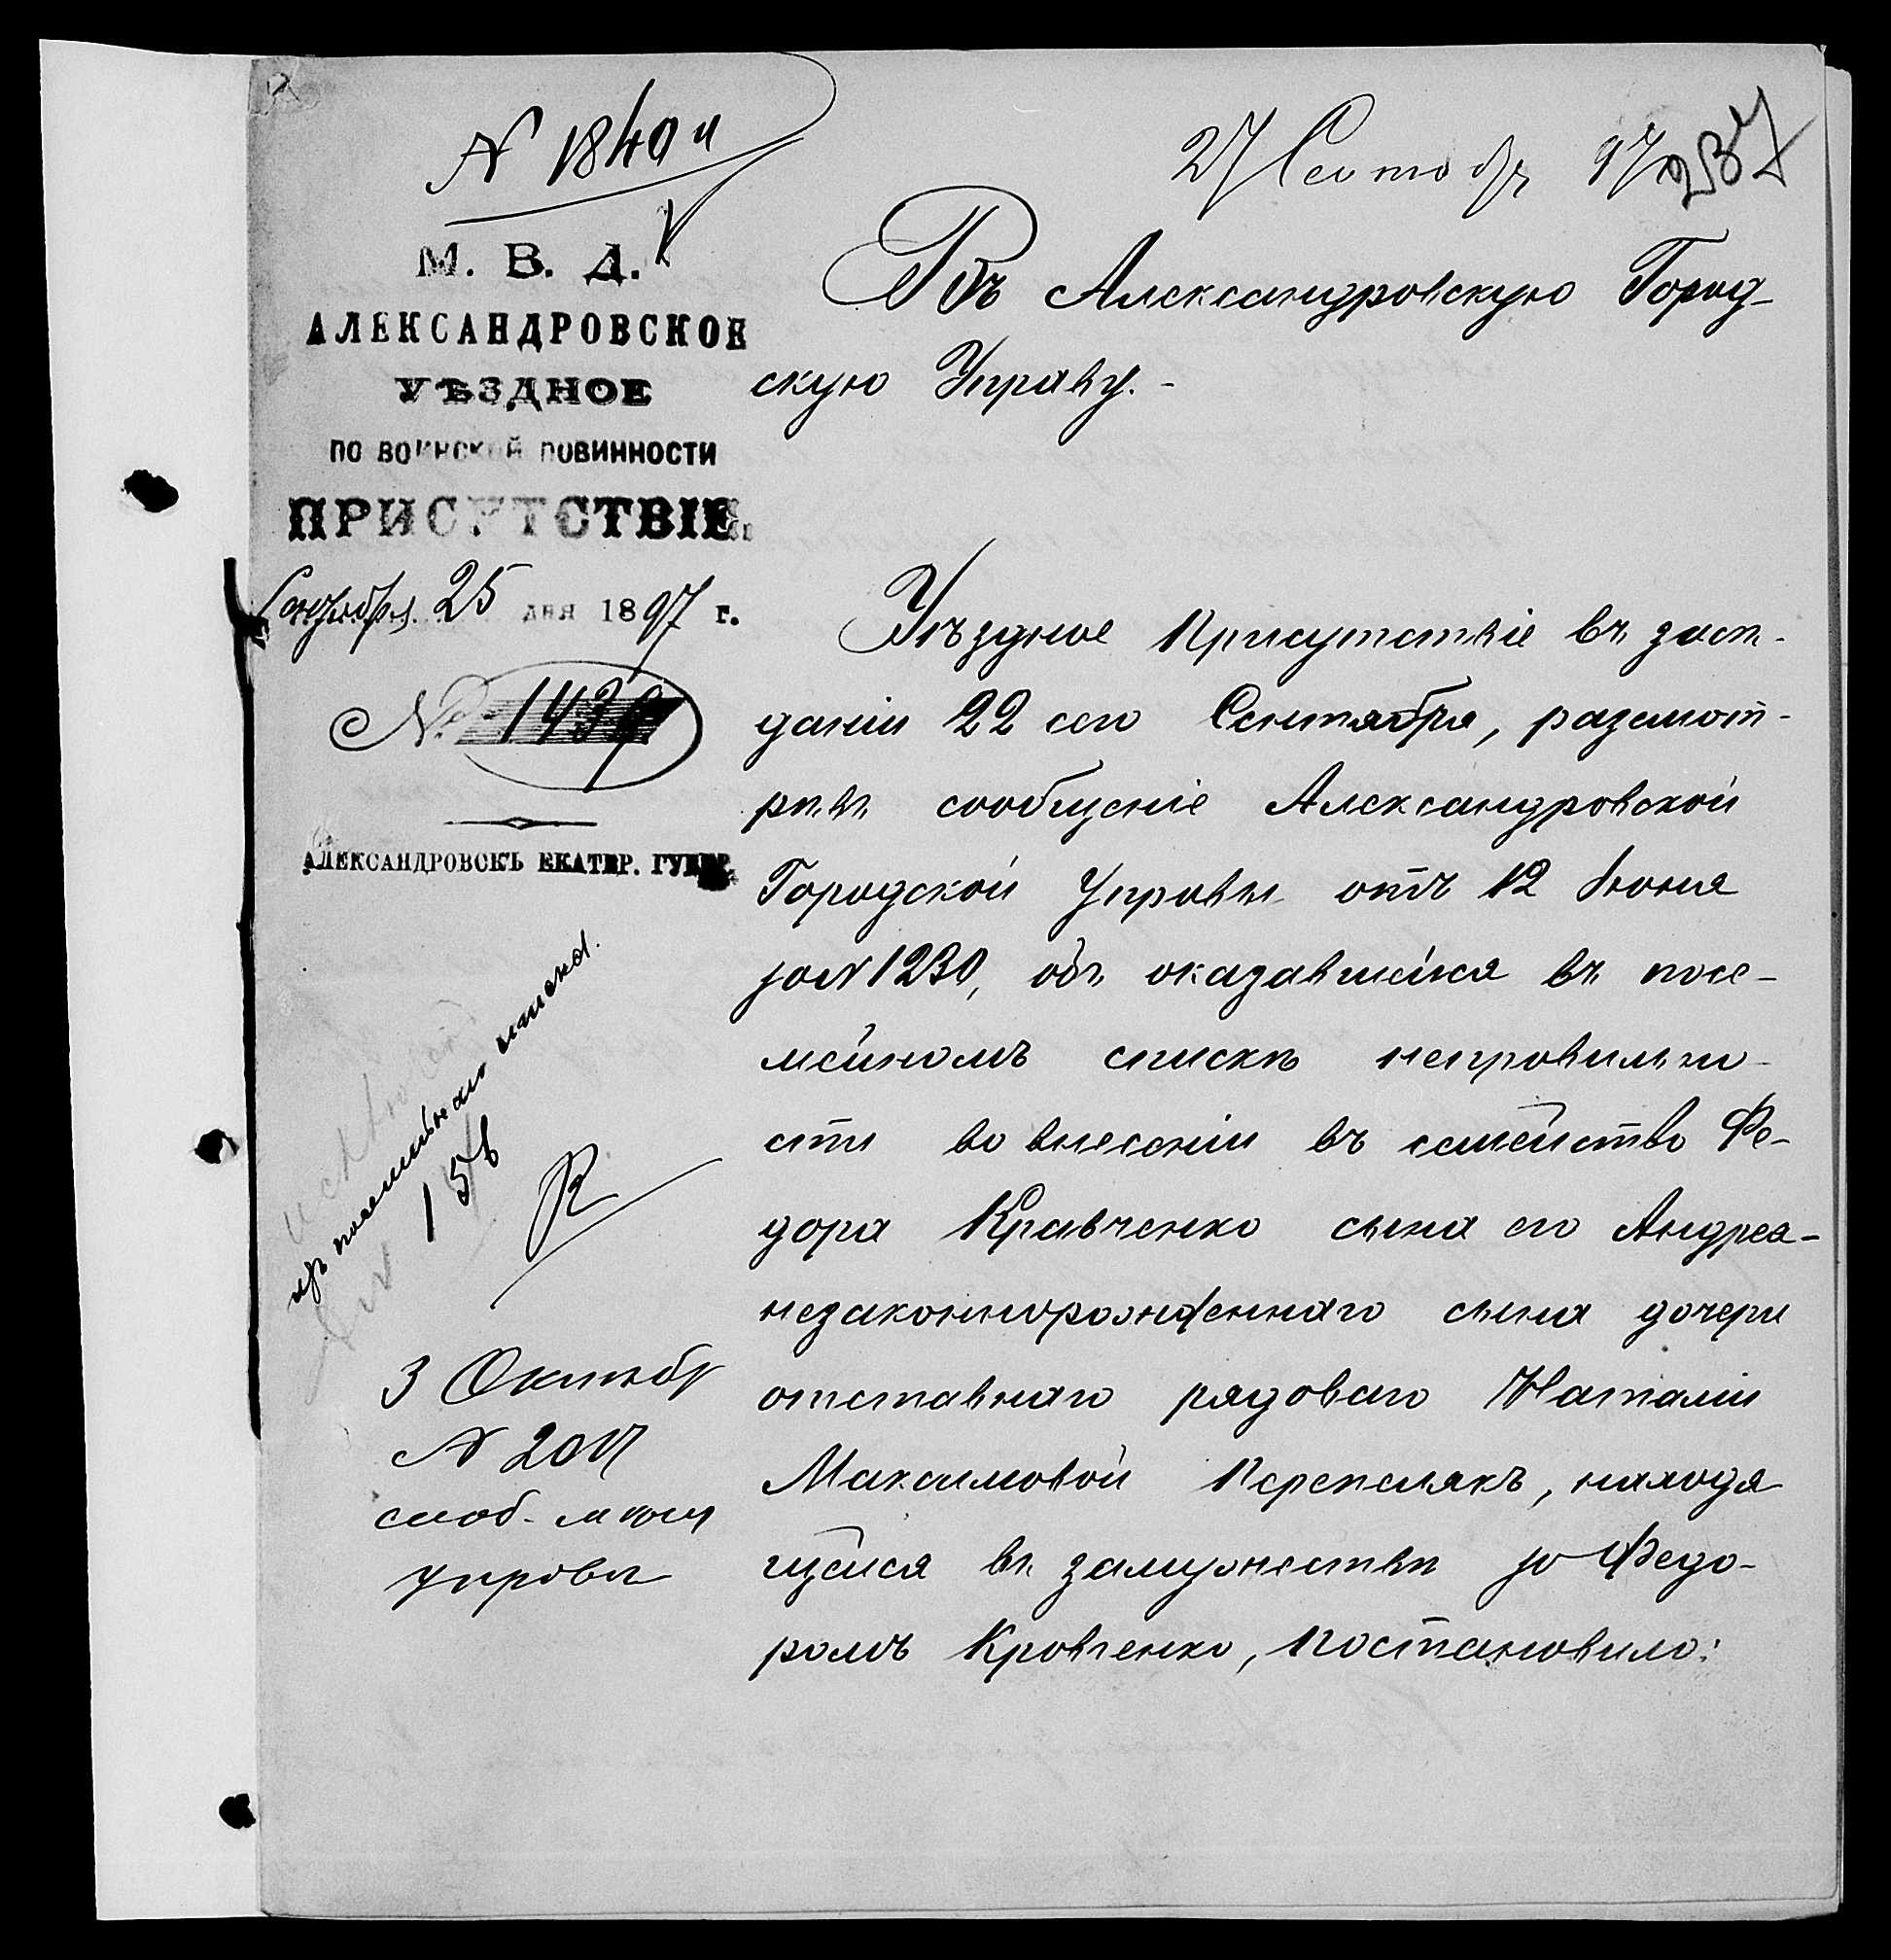 N 1840
27 Сентябр 97
237
М. В. Д.
АЛЕКСАНДРОВСКОЕ
УѢЗДНОЕ
ПО ВОИНСКОЙ ПОВИННОСТИ
ПРИСУТСТВІЕ.
Сентября 25 дня 1897 г.
№ 1439
АЛЕКСАНДРОВСКЪ ЕКАТЕР. ГУБЕР.
Въ Александровскую Город-
скую Управу.-
Уѣздное Присутствіе въ засѣ-
даніи 22 сего Сентября, разсмот-
рѣвъ сообщеніе Александровской
Городской Управы отъ 12 Июня
за N 1230, объ оказавшейся въ посе-
мейномъ спискѣ неправильно-
сти во внесеніи въ семейство Фе-
дора Кравченко сына его Андрея-
незаконнорожденнаго сына дочери
отставнаго рядоваго Наталіи
Максимовой Перепелякъ, находя
щейся въ замужествѣ за Федо-
ромъ Кравченко, постановило:
посемейнаго списка.
156
3 Октябр
N 2017
сооб. мѣщ
управы